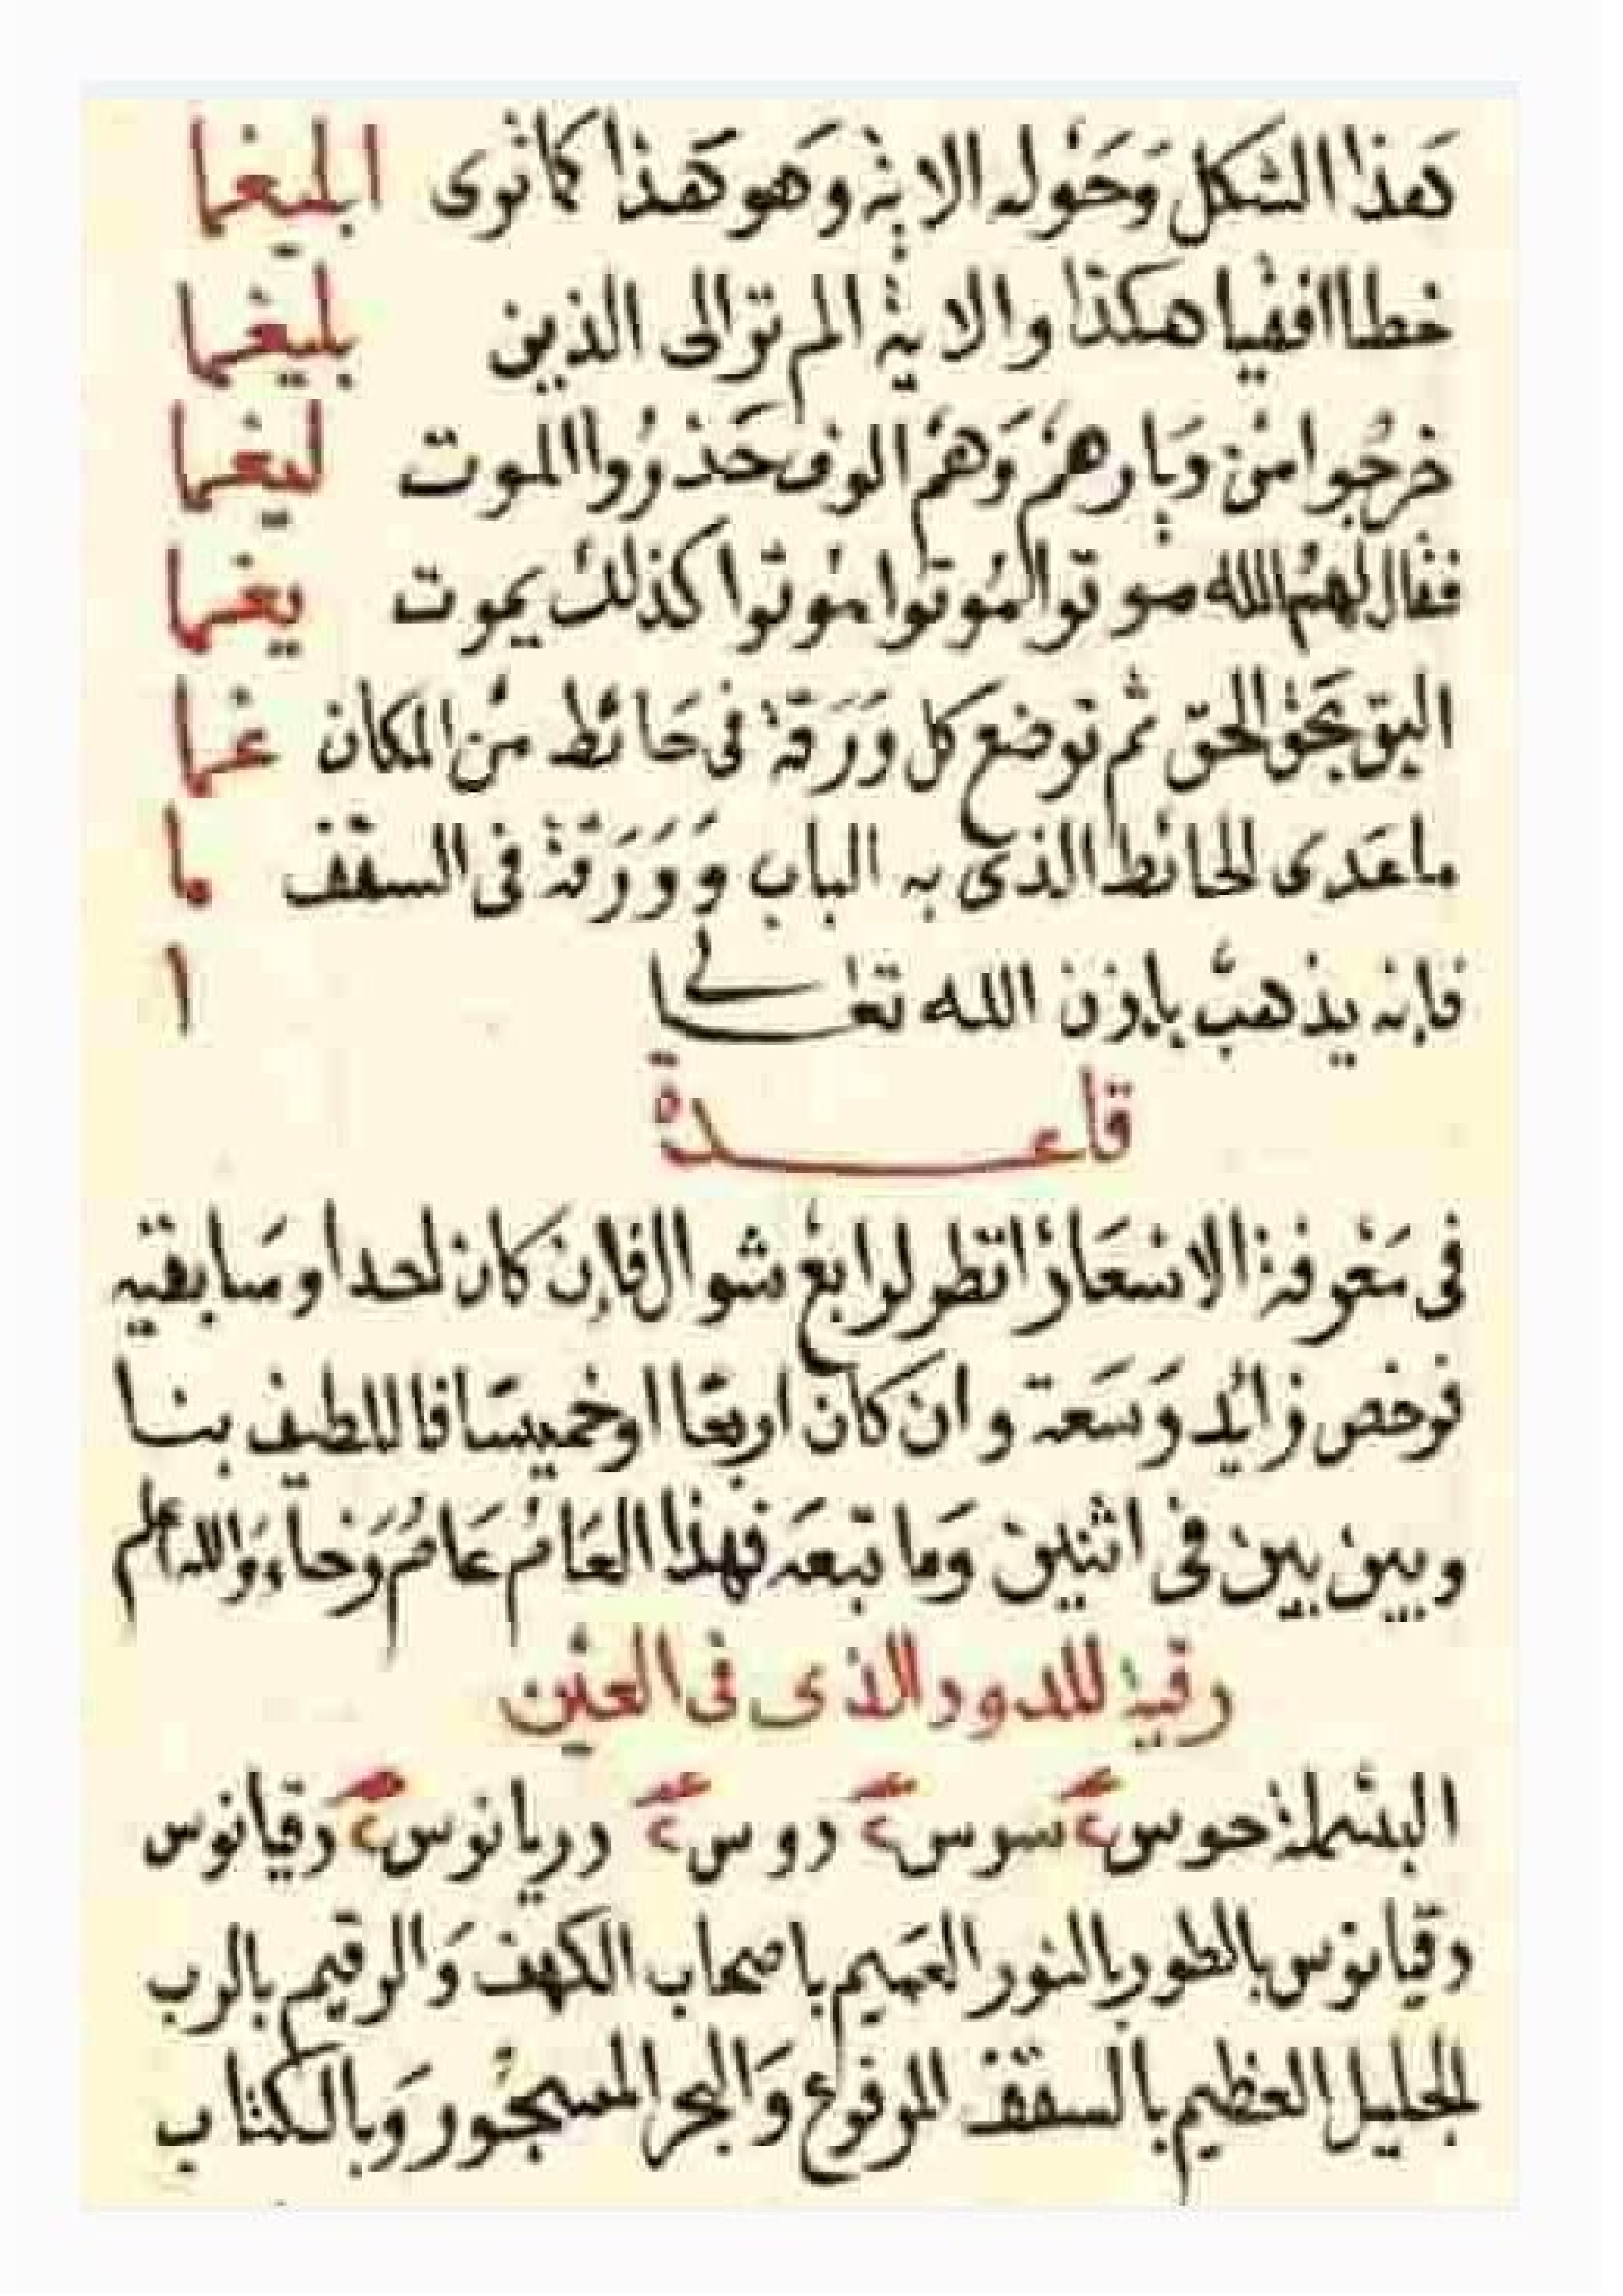 هذا الشكل وحوله الاية وهو هذا كما ترى ابليغما
خطا افقيا هكذا والاية الم تر الى الذين بليغما
خرجوا من ديارهم وهم الوف حذروا الموت ليغما
فقال لهم الله موتوا لموتوا موتوا كذلك يموت يغما
البق بحق الحق ثم توضع كل ورقة فى حائط من المكان غما
ماعدى الحائط الذى به الباب وورقة فى السقف ما
فإنه يذهب بإذن الله تعالى ا
قاعدة
فى معرفة الاسعار انظر لرابع شوال فإن كان لحدا وسابقيه
فرخص زايد وسعة وان كان اربعا او خميسا فاللطيف بنا
وبين بين فى اثنين وما تبعه فهذا العام عام رخاء والله اعلم
رقية للدود الذى فى العين
البسملة حوس سوس دوس دريانوس دقيانوس
دقيانوس بالطور بالنور العميم باصحاب الكهف والرقيم بالرب
الجليل العظيم بالسقف المرفوع والبحر المسجور وبالكتاب